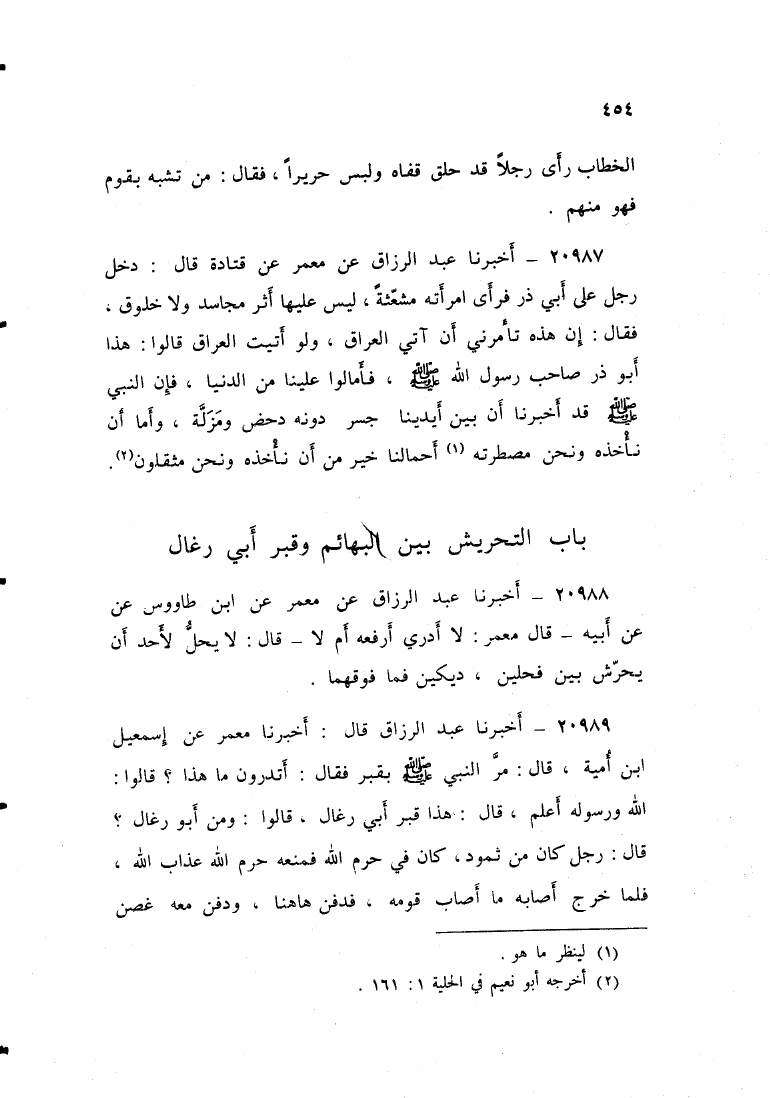 ٤٥٤
الخطاب رأى رجلاً قد حلق قفاه ولبس حريراً ، فقال : من تشبه بقوم
فهو منهم .
٢٠٩٨٧ – أخبرنا عبد الرزاق عن معمر عن قتادة قال : دخل
رجل على أبي ذر فرأى امرأته مشعّثةً ، ليس عليها أثر مجاسد ولا خلوق ،
فقال : إن هذه تأمرني أن آتي العراق ، ولو أتيت العراق قالوا : هذا
أبو ذر صاحب رسول الله ﷺ ، فأمالوا علينا من الدنيا ، فإن النبي
ﷺ قد أخبرنا أن بين أيدينا جسر دونه دحض ومَزَلَّة ، وأما أن
نأْخذه ونحن مصطرته (١) أحمالنا خير من أن نأْخذه ونحن مثقلون(٢).
باب التحريش بين البهائم وقبر أبي رغال
٢٠٩٨٨ – أخبرنا عبد الرزاق عن معمر عن ابن طاووس عن
عن أبيه – قال معمر : لا أدري أرفعه أم لا – قال : لا يحلُّ لأحد أن
يحرّش بين فحلين ، ديكين فما فوقهما .
٢٠٩٨٩ – أخبرنا عبد الرزاق قال : أخبرنا معمر عن إسمعيل
ابن أُمية ، قال : مرَّ النبي ﷺ بقبر فقال : أتدرون ما هذا ؟ قالوا :
الله ورسوله أعلم ، قال : هذا قبر أبي رغال ، قالوا : ومن أبو رغال ؟
قال : رجل كان من ثمود ، كان في حرم الله فمنعه حرم الله عذاب الله ،
فلما خرج أصابه ما أصاب قومه ، فدفن هاهنا ، ودفن معه غصن
(١) لينظر ما هو .
(٢) أخرجه أبو نعيم في الحلية ١ : ١٦١ .